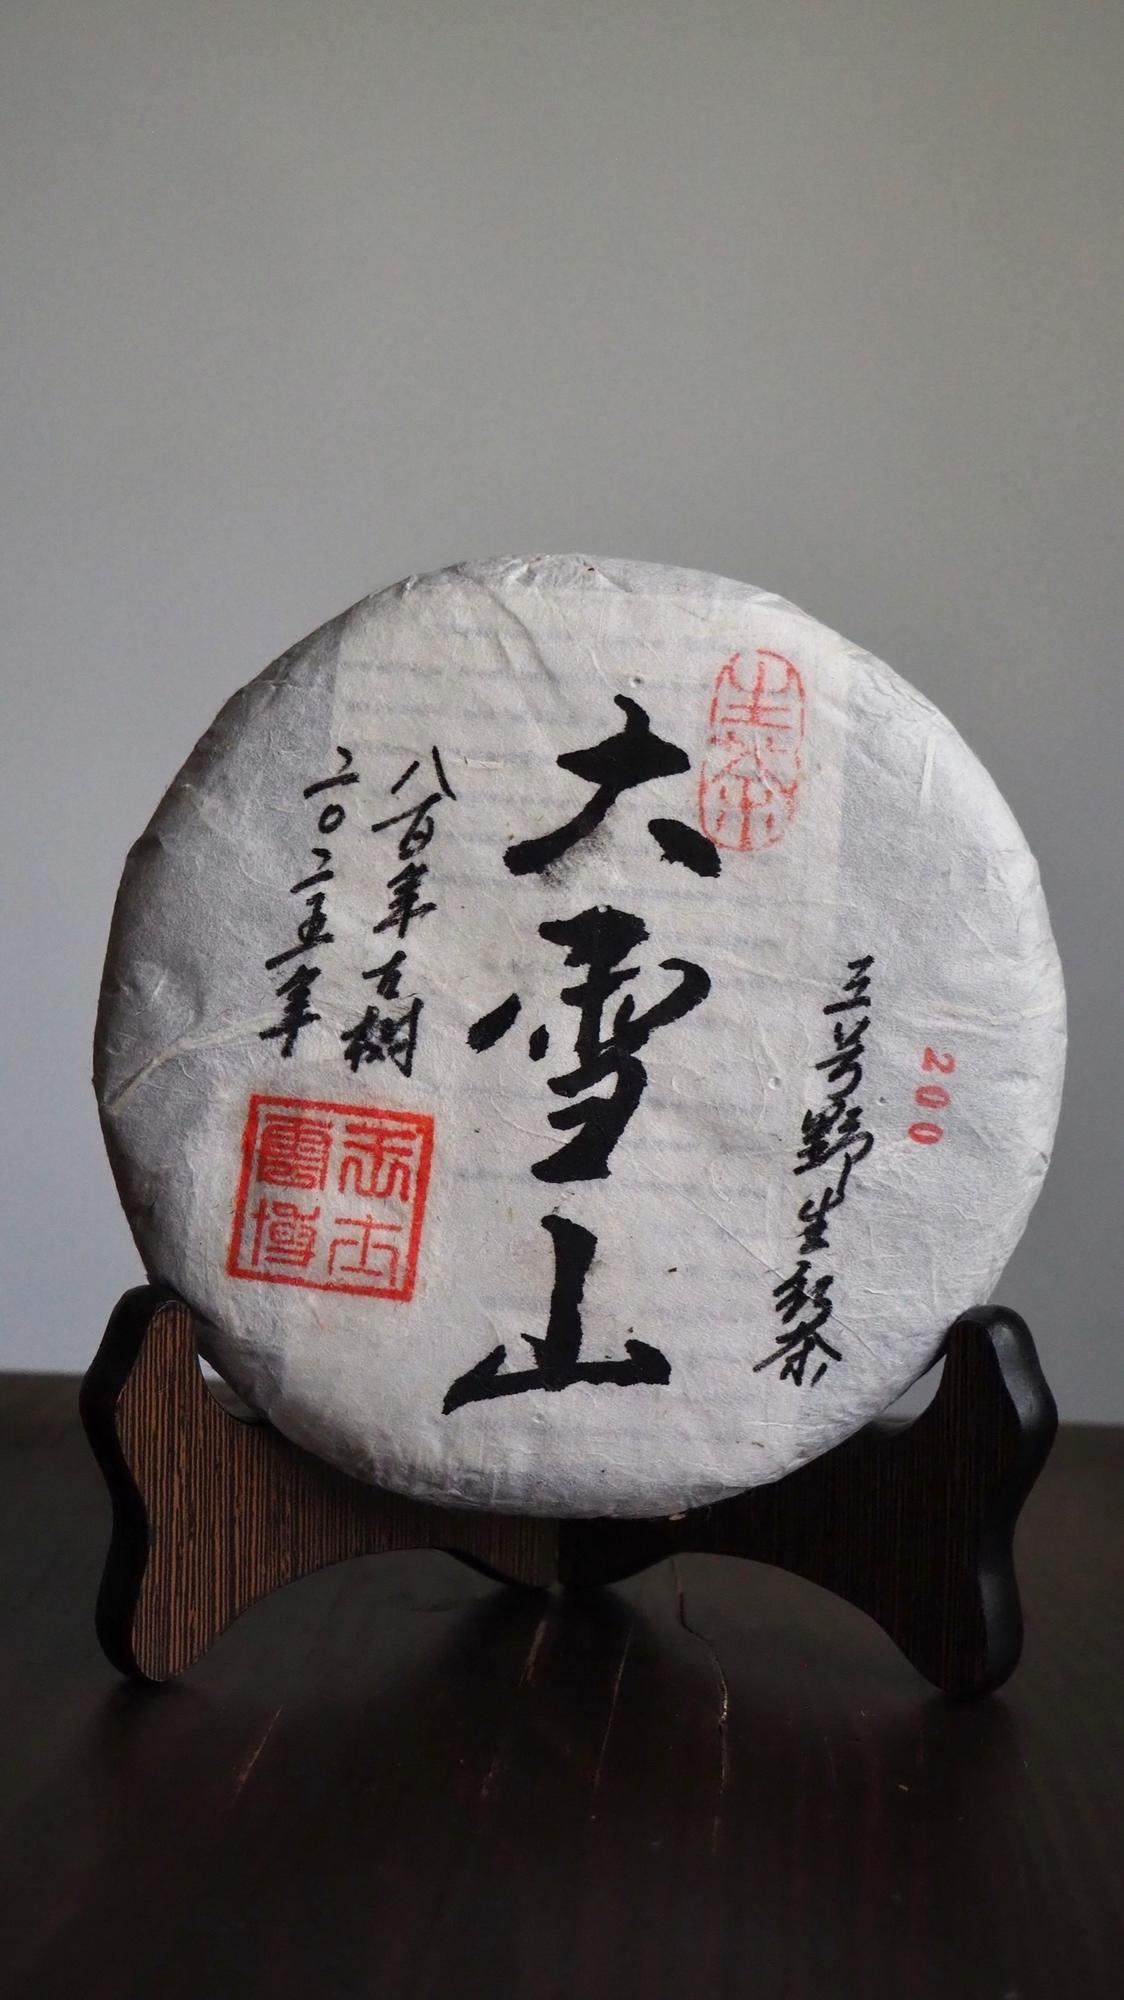 200
三号野生茶
生茶
大雪山
八百年古樹
二〇二五年